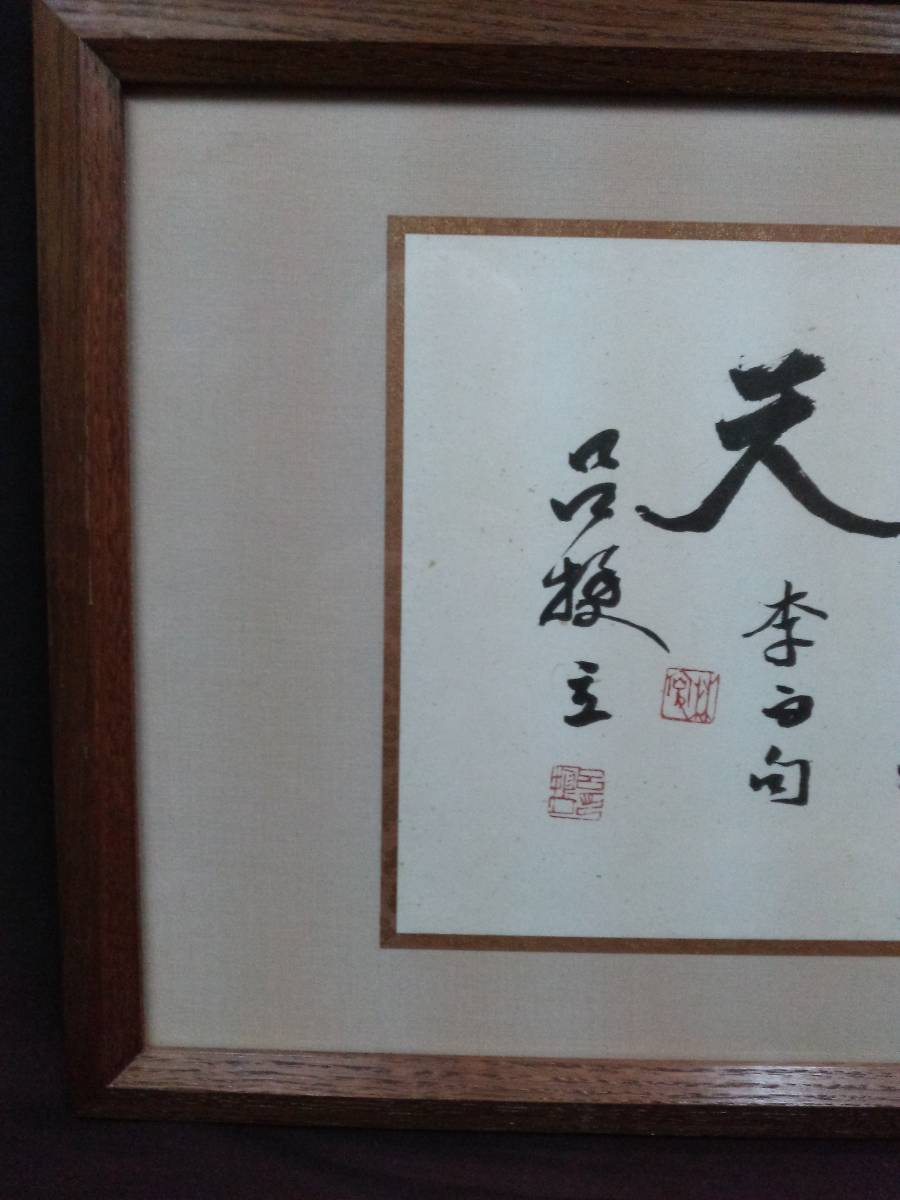 天
李白句
呂挺立